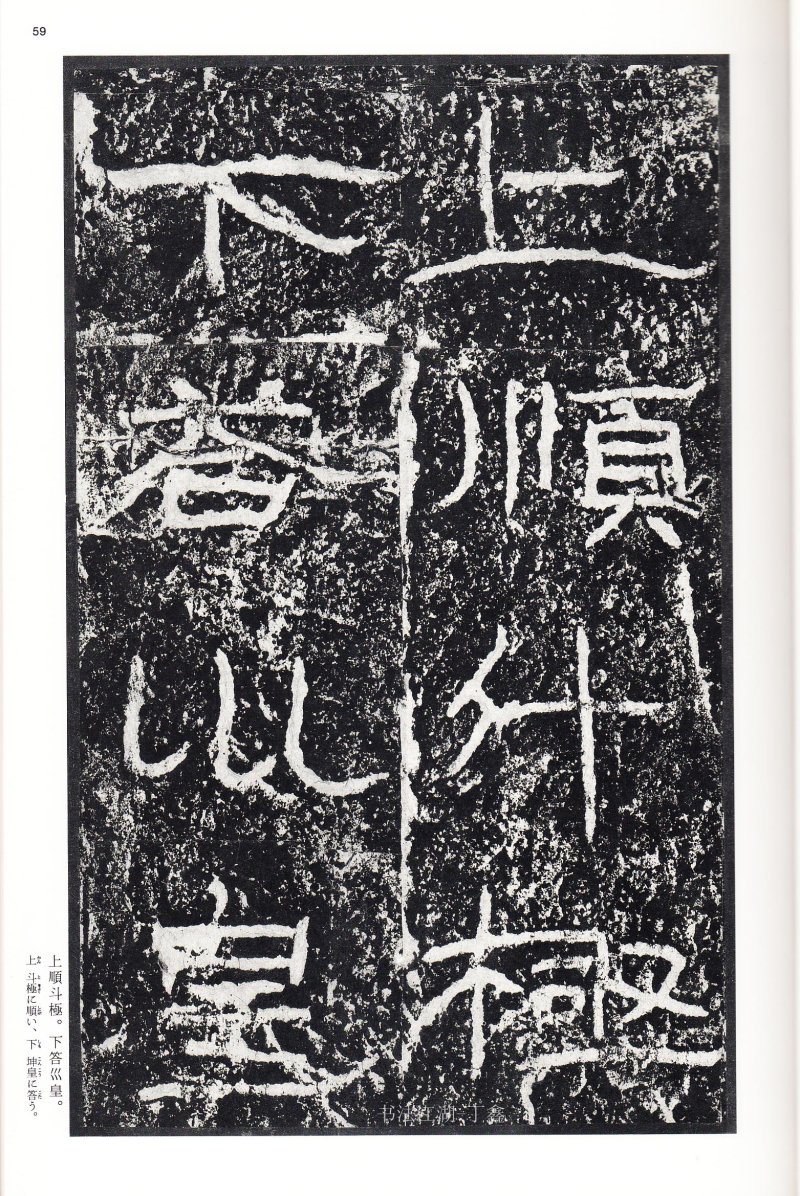 59
上順斗極
下答巛皇
上順斗極。下答巛皇。
上斗極に順い、下坤皇に答う。
书法江湖 丁鑫